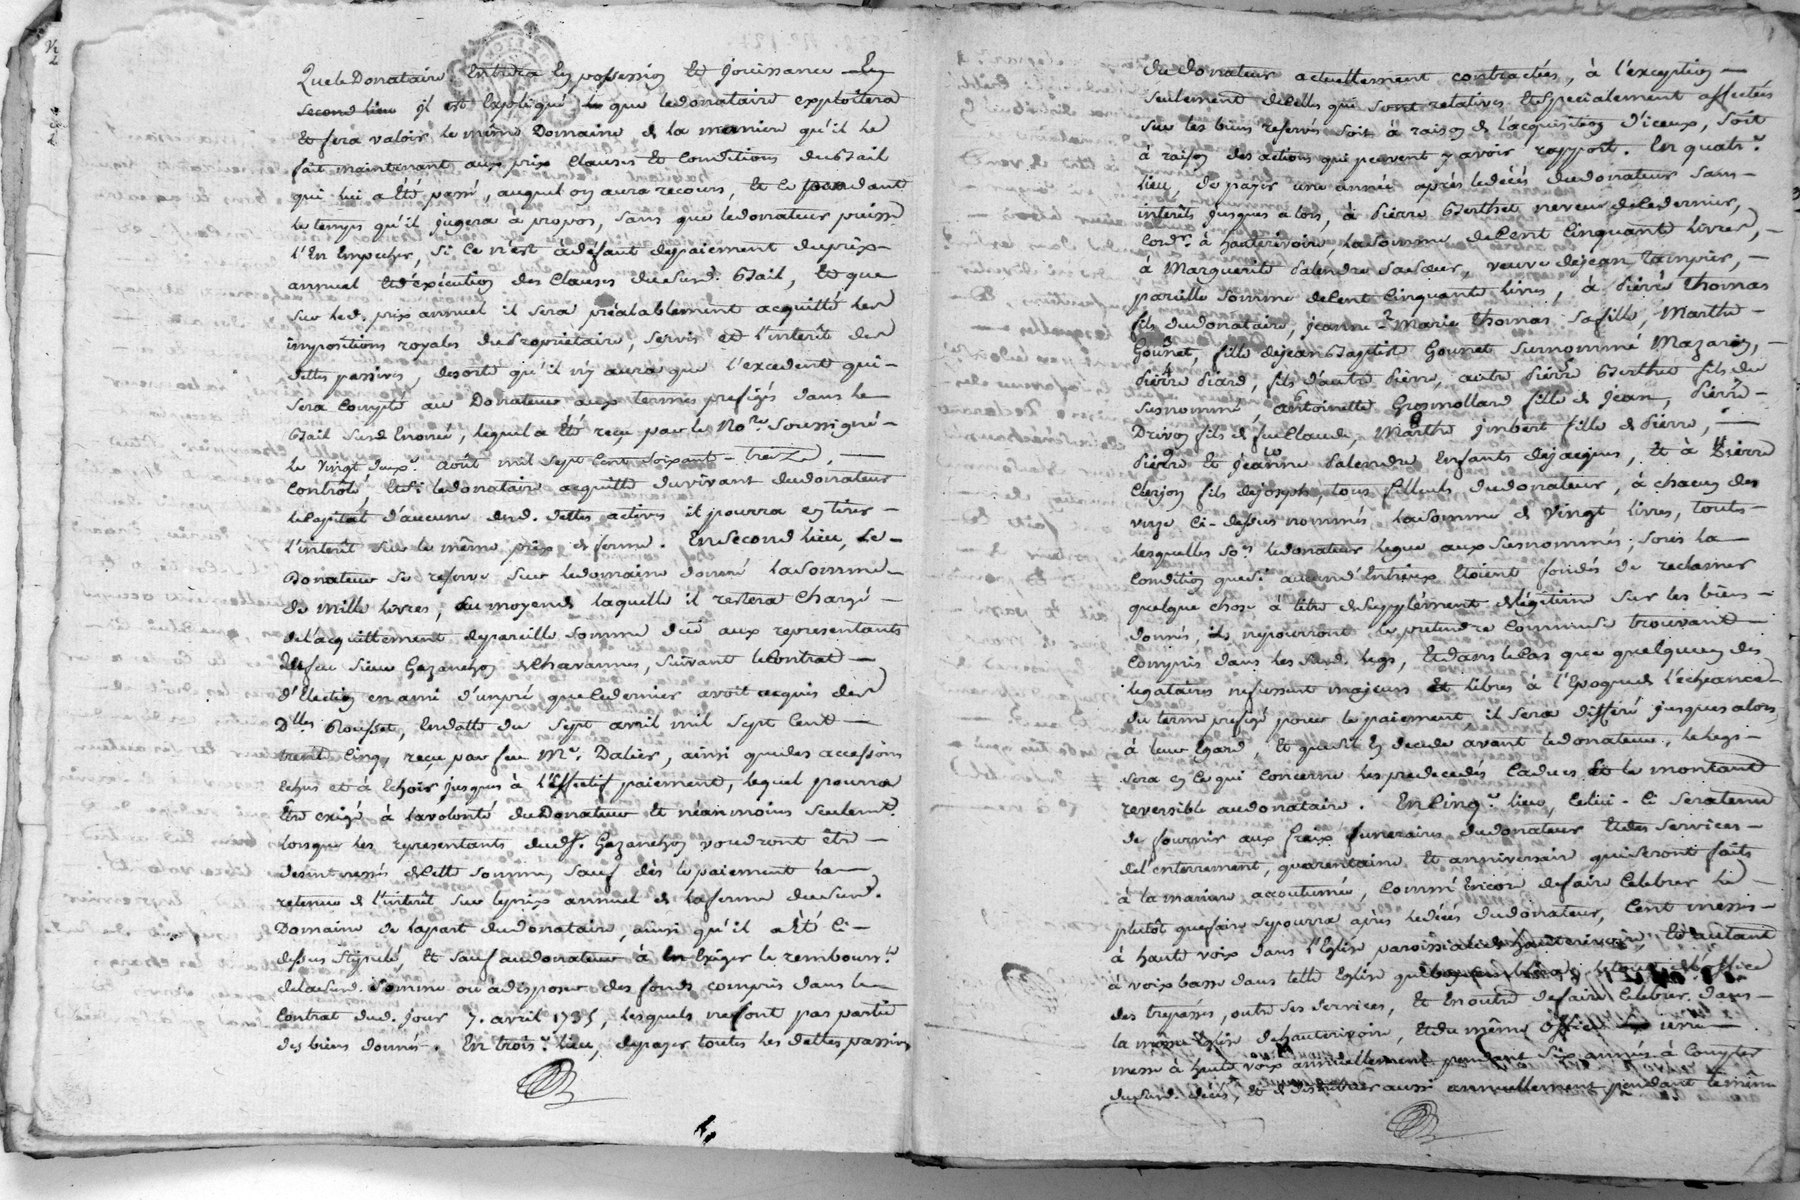 Que le Donataire Entrera En possession Et Jouissance. En
second lieu il est Expliqué que le donataire exploitera
Et fera valoir le même Domaine de la maniere qu'il le
fait maintenant aux prix Clauses Et Conditions du Bail
qui lui a Eté passé, auquel on aura recours, Et ce pendant
le temps qu'il jugera à propos, sans que le donateur puisse
l'En Empecher, si ce n'est à défaut de paiement du prix
annuel Et d'exécution des Clauses du susd. Bail, Et que
sur led. prix annuel il sera préalablement acquitté les
impositions royales du Propriétaire, servis et l'interêt des
dettes passives, desorte qu'il n'y aura que l'excedent qui
sera Compté au Donateur aux termes prefigés dans le
Bail susd Enoncé, lequel a Eté reçu par le No.re soussigné
le vingt deux.e Août mil sept Cent soixante-treize,
Controlé, Et si le donataire acquitte du vivant du donateur
le Capital d'aucune desd. dettes actives il pourra en tirer
l'interêt sur le même prix de ferme. En second lieu, Le
Donateur se reserve sur le domaine donné la somme
de mille livres, au moyen de laquelle il restera Chargé
de l'acquittement de pareille somme düe aux representants
de feu sieur Gazanchon de Chavannes, suivant le Contrat
d'Election en ami d'un pré que le dernier avoit acquis des
D.lles Rousset, En datte du sept avril mil sept Cent
trente Cinq, reçu par feu M.e Dalier, ainsi que des accessions
Echus et à Echoir jusques à l'Effectif paiement, lequel pourra
Etre exigé à la volonté du Donateur Et néanmoins seulem.t
lorsque les representants dud. S.r Gazanchon voudront être
desinteressés de Cette somme, sauf dès le paiement la
retenue de l'interêt sur le prix annuel de la ferme du susd.
Domaine de la part du donataire, ainsi qu'il a Eté Ci-
dessus stipulé, Et sauf au donateur à En Exiger le rembours.t
de la susd. somme ou à disposer des fonds compris dans le
Contrat dud. jour 7. avril 1735, lesquels ne font pas partie
des biens donnés. En trois.e lieu, de payer toutes les dettes passives
du donateur actuellement contractées, à l'exception
seulement de Celles qui sont relatives Et Specialement affectées
sur les biens reservés soit à raison de l'acquisition d'iceux, soit
à raison des actions qui peuvent y avoir rapport. En quatr.e
lieu, de payer une année après le décès du donateur sans
interêts jusques alors, à Pierre Berthet neveu de Ce dernier,
Cord.r à hauterivoire la somme de Cent Cinquante livres,
à Marguerite Palendre sa sœur, veuve de jean,
pareille somme de Cent Cinquante livres, à Pierre Thomas
fils du donataire, jeanne-Marie Thomas sa fille, Marthe
Gounet, fille de jean Baptiste Gounet surnommé Mazarin,
Pierre Piard, fils d'autre Pierre, autre Pierre Berthet fils du
susnommé, Antoinette Grosmollard fille de jean, Pierre
Drivon fils de feu Claude, Marthe Imbert fille de Pierre,
Pierre Et Jeanne Palendre Enfants de jacques, Et à Pierre
Clerjon fils de joseph, tous filleuls du donateur, à chacun des
onze ci-dessus nommés la somme de vingt livres, toutes
lesquelles so.es le donateur legue aux susnommés; sous la
Condition que si aucun d'Entr'eux Etoient fondés de reclamer
quelque chose à titre de supplément de légitime sur les biens
donnés, ils ne pourront le pretendre Comme se trouvant
Compris dans les susd. legs, Et dans le Cas que quelqu'un des
legataires ne fussent majeurs Et libres à l'Epoque de l'échéance
du terme prefigé pour le paiement, il sera différé jusques alors
à leur Egard, Et que s'il En decede avant le donateur, le legs
sera En Ce qui Concerne les predecedés Caduc, Et le montant
reversible au donataire. En Cinq.e lieu, Celui-Ci sera tenu
de fournir aux fraix funeraires du donateur Et des services
de l'enterrement, quarantaine Et anniversaire qui seront faits
à la maniere accoutumée, Comme Encor de faire Celebrer le
plutôt que faire se pourra après le décès du donateur, Cent messes
à haute voix dans l'Eglise paroissiale de hauterivoire, Et autant
à voix basse dans cette Eglise
des trepassés, outre les services, Et En outre de faire Celebrer dans
la même Eglise de hauterivoire, Et du même office une
messe à haute voix annuellement pendant six années à Compter
du susd. décès, Et de distribuer aussi annuellement pendant le même